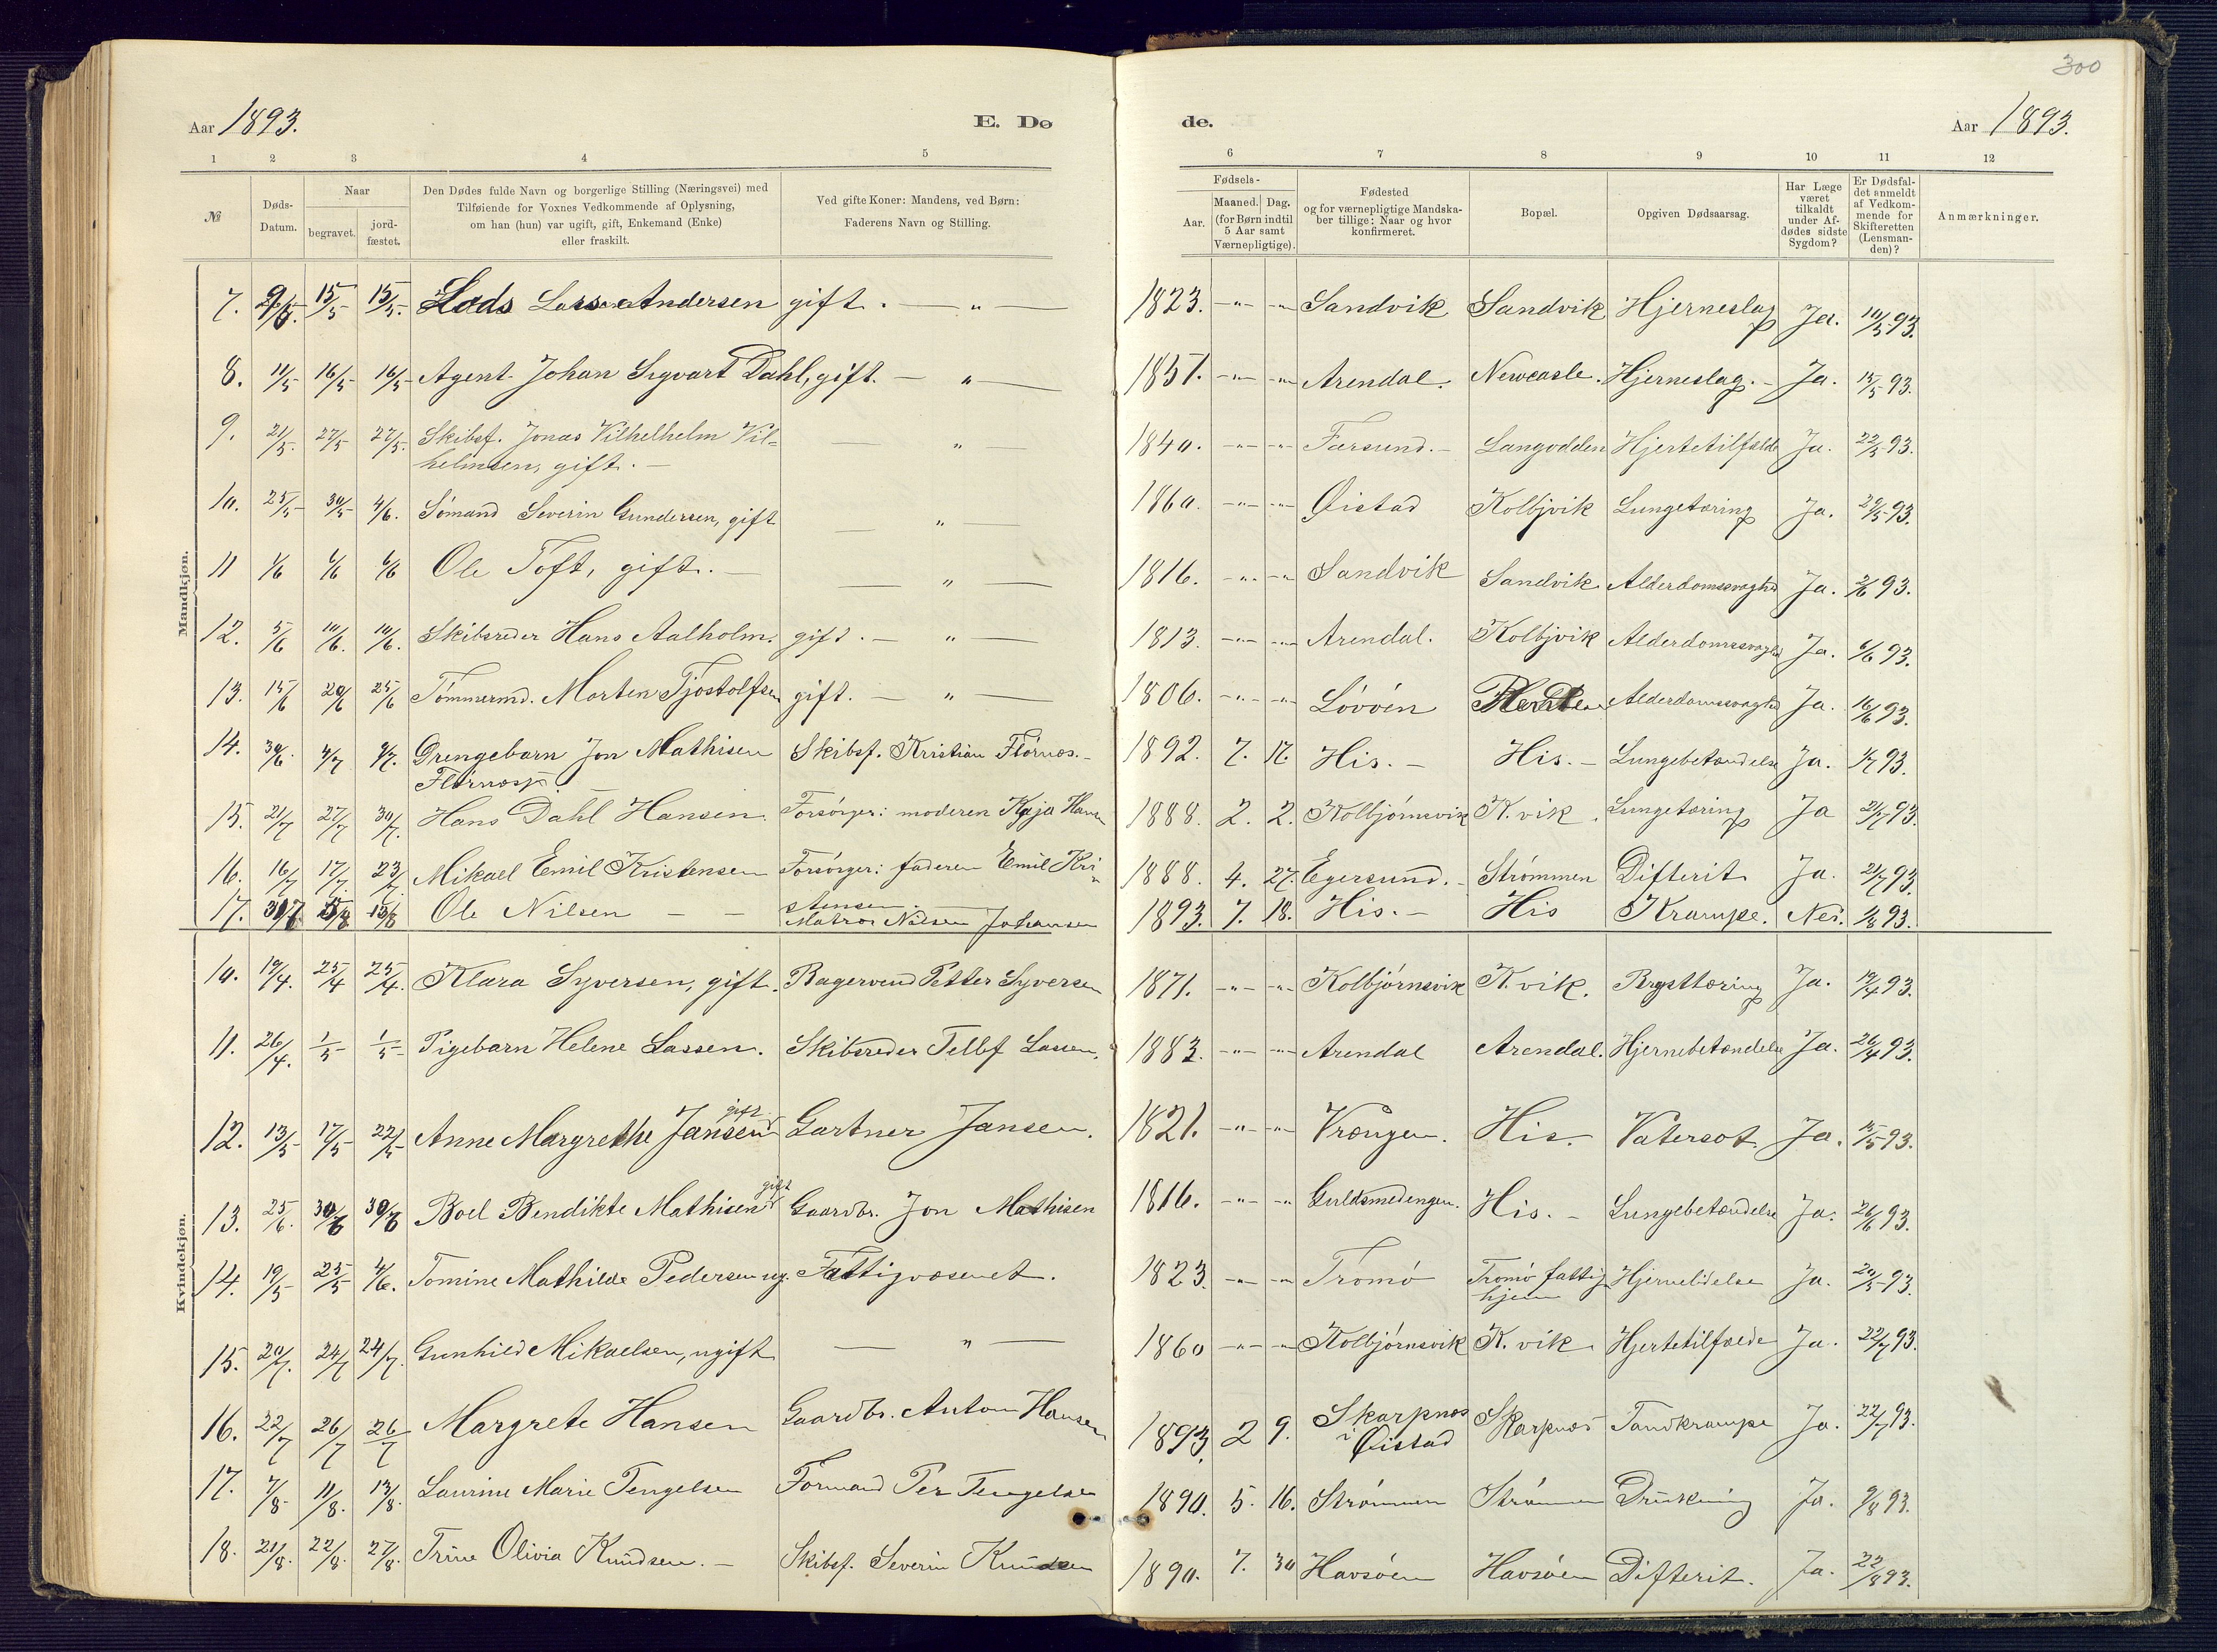 300
Aar 1893. E. Dø de. Aar 1893.
1 2 3 4 5 6 7 8 9 10 11 12
№ Døds-Datum. Naar begravet. jord-fæstet. Den Dødes fulde Navn og borgerlige Stilling (Næringsvei) med Tilføiende for Voxnes Vedkommende af Oplysning, om han (hun) var ugift, gift, Enkemand (Enke) eller fraskilt. Ved gifte Koner: Mandens, ved Børn: Faderens Navn og Stilling. Fødsels- Aar. Maaned. Dag. (for Børn indtil 5 Aar samt Værnepligtige). Fødested og for værnepligtige Mandska-ber tillige: Naar og hvor konfirmeret. Bopæl. Opgiven Dødsaarsag. Har Læge været tilkaldt under Af-dødes sidste Sygdom? Er Dødsfal-det anmeldt af Vedkom-mende for Skifteretten (Lensman-den)? Anmærkninger.
Mandkjøn.
7. 9/5. 15/5 15/5. Lods Lars Andersen gift. — „ — 1823. -„- -„ Sandvik Sandvik Hjerneslag Ja. 10/5 93.
8. 11/5 16/5 16/5 Agent Johan Sigvart Dahl, gift. — „ — 1851. -„- -„ Arendal. Newcasle. Hjerneslag. - Ja. 15/5 93.
9. 21/5. 27/5 27/5. Skibsf. Jonas Vilhelhelm Vil= — „ — 1840. -„- -„ Farsund. - Langodden Hjertetilfælde Ja. 22/5 93.
helmsen, gift. -
10. 25/5 30/5 4/6. Sømand Severin Gundersen, gift — „ — 1860. -„- -„ Øistad Kolbjvik Lungetæring Ja. 29/5 93.
11 1/6 6/6 6/6 Ole Toft, gift. — — „ — 1816. -„- -„ Sandvik Sandvik Alderdomssvaghd Ja. 2/6 93.
12. 5/6 10/6. 10/6. Skibsreder Hans Aalholm. gift. — „ — 1813. -„- -„ Arendal. Kolbjvik Alderdomssvaghd Ja. 6/6 93.
13. 15/6 20/6 25/6 Tømmermd. Morten Tjostolfsen gift. — „ — 1806. -„- -„ Løvøen Alderdomssvaghd Ja. 16/6 93.
14. 30/6. 4/7 9/7. Drengebarn Jon Mathisen Skibsf. Kristian Flørnæs. - 1892. 7. 17. His. - His. - Lungebetændelse Ja. 1/7 93.
Flørnæs.
15. 21/7 27/7 30/7. Hans Dahl Hansen. Forsørger: moderen Kaja Hansen 1888. 2. 2. Kolbjørnsvik K. vik. Lungetæring Ja 21/7 93.
16. 16/7 17/7. 23/7. Mikael Emil Kristensen Forsørger: faderen Emil Kri- 1888. 4. 27. Egersund. - Strømmen Difterit Ja. 21/7 93.
stensen.
17. 31/7 15/8 15/8 Ole Nilsen — — Matros Nilsen Johansen 1893. 7. 18. His. - His Krampe. Nei. 1/8 93.
Kvindekjøn.
10. 19/4. 25/4 25/4. Klara Syversen, gift. Bagersvend Petter Syversen 1871. -„- -„ Kolbjørnsvik K. vik. Brysttæring Ja. 19/4 93.
11. 26/4. 1/5 1/5 Pigebarn Helene Lassen. Skibsreder Tellef Lassen. 1883. -„- -„ Arendal Arendal. Hjernebetændelse Ja. 26/4 93.
12. 13/5 17/5 22/5 Anne Margrethe Jansen gift Gartner Jansen. 1821. -„- -„ Vrængen. His. Vatersot. Ja. 15/5 93.
13. 25/6. 30/6 30/6 Boel Bendikte Mathisen gift Gaardbr. Jon Mathisen 1816. -„- -„ Guldsmedengen. His. - Lungebetændelse Ja. 26/6 93.
14. 19/5 25/5 4/6. Tomine Mathilde Pedersen ug. Fattigvæsenet. 1823. -„- -„ Tromø Tromø fattig Hjernelidelse Ja. 20/5 93.
hjem
15. 20/7. 24/7 24/7. Gunhild Mikaelsen, ugift — „ — 1860 -„- -„ Kolbjørnsvik K. vik. Hjertetilfælde Ja. 22/7 93.
16. 22/7 26/7 26/7 Margrete Hansen Gaardbr. Anton Hansen 1893. 2 9. Skarpnæs Skarpnæs Tandkrampe Ja. 22/7 93.
i Øistad
17. 7/8. 11/8. 13/8. Laurine Marie Tengelsen Formand Per Tengelsen 1890. 5. 16. Strømmen Strømmen Drukning Ja. 9/8 93.
18. 21/8. 22/8. 27/8. Trine Olivia Knudsen. - Skibsf. Severin Knudsen 1890. 7. 30 Havsøen Havsøen Difterit. Ja. 22/8 93.